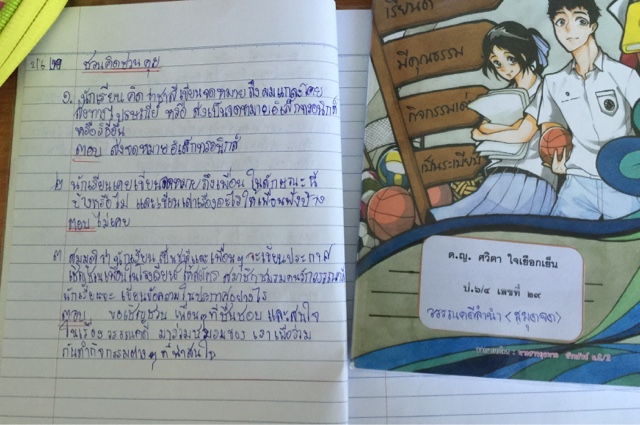 ชวนคิดชวนคุย
๑. นักเรียนคิดว่าชาลีเขียนจดหมายถึงผมแกละโดย
หรือวิธีอื่น
ตอบ ส่งจดหมายอิเล็กทรอนิกส์
๒ นักเรียนเคยเขียนจดหมายถึงเพื่อนในลักษณะนี้
บ้างหรือไม่ และเขียนเล่าเรื่องอะไรให้เพื่อนฟังบ้าง
ตอบ ไม่เคย
๓ สมมติว่านักเรียน และเพื่อนๆ จะเขียนประกาศ
เชิญชวนเพื่อนในโรงเรียน สมาชิกชมรมคนรักวรรณคดี
นักเรียนจะเขียนข้อความในประกาศอย่างไร
ตอบ ขอเชิญชวนเพื่อนๆที่ชื่นชอบและสนใจ
ในเรื่องวรรณคดี มาร่วมชมรมของเราเพื่อร่วม
กันทำกิจกรรมต่างๆที่น่าสนใจ
เรียนดี
มีคุณธรรม
กิจกรรมเด่น
เป็นระเบียบ
ด.ญ. ศวิตา ใจเยือกเย็น
ป.๖/๔ เลขที่ ๒๙
วรรณคดีลำนำ (สมุดจด)